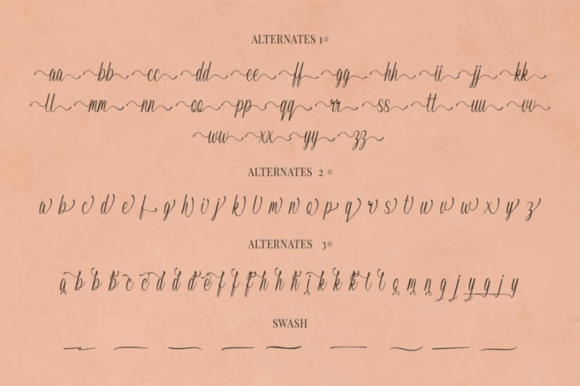 ALTERNATES 1#
aa bb cc dd ee ff gg hh ii jj kk
ll mm nn oo pp qq rr ss tt uu vv
ww xx yy zz
ALTERNATES 2#
a b c d e f g h i j k l m n o p q r s t u v w x y z
ALTERNATES 3#
a b b b c c d d d e f f f f h h h i k k k l l l o m n g j y g j y
SWASH